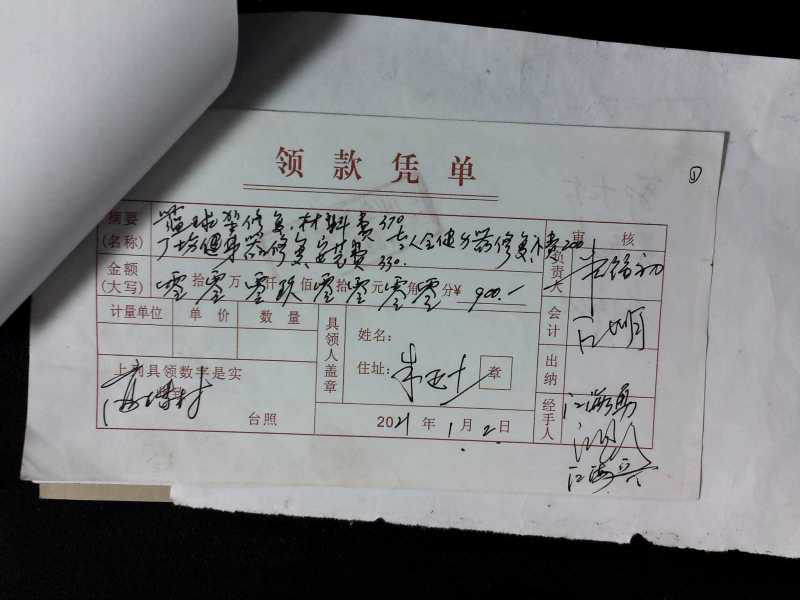 领款凭单
①
摘要
(名称)
篮球架修复.材料费370
广场健身器修复安装费330.
人全健身器修复补费200
审核
金额
(大写)
零拾零万零仟玖佰零拾零元零角零分¥ 900.-
负责人
计量单位 单价 数量
会计
具领人盖章
姓名:
住址:
章
出纳
上列具领数字是实
台照
2021年1月2日
经手人
江海勇
江海兵